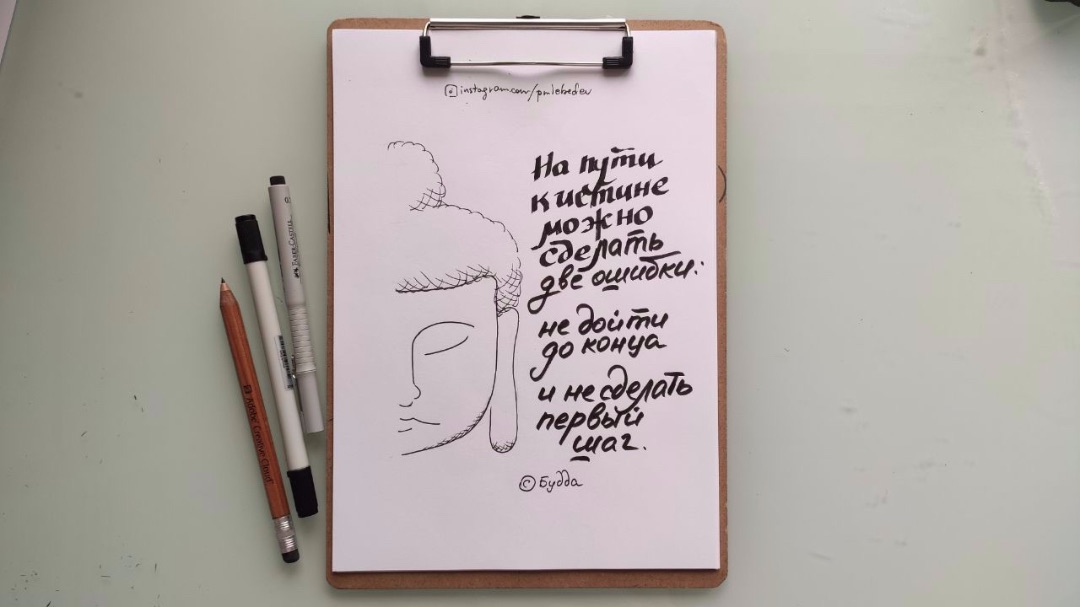 instagram.com/pmlebedev
На пути
к истине
можно
сделать
две ошибки:
не дойти
до конца
и не сделать
первый
шаг.
© Будда
FABER-CASTELL
Adobe Creative Cloud